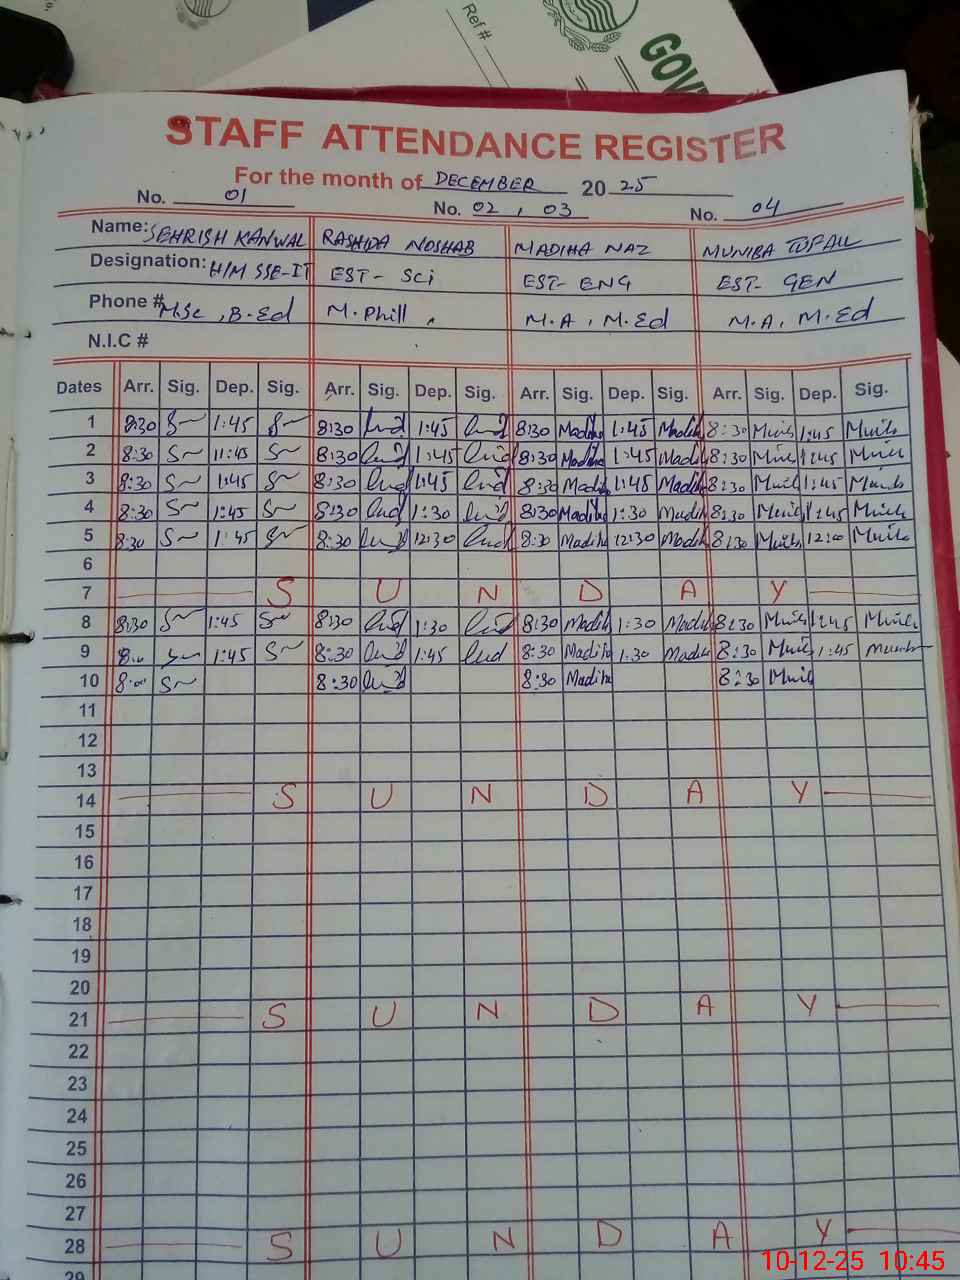 Ref #
GOV
STAFF ATTENDANCE REGISTER
For the month of DECEMBER 20 25
No. 01 No. 02 , 03 No. 04
Name: SEHRISH KANWAL RASHIDA NOSHAB MADIHA NAZ MUNIBA TUFAIL
Designation: H/M SSE-IT EST- Sci EST- ENG EST- GEN
Phone # M.Sc , B.Ed M.Phill . M.A , M.Ed M.A , M.Ed
N.I.C #
Dates Arr. Sig. Dep. Sig. Arr. Sig. Dep. Sig. Arr. Sig. Dep. Sig. Arr. Sig. Dep. Sig.
1 8:30 1:45 8:30 1:45 8:30 Madiha 1:45 Madih 8:30 1:45
2 8:30 11:45 8:30 1:45 8:30 Madiha 1:45 Madih 8:30 1:45
3 8:30 1:45 8:30 1:45 8:30 Madih 1:45 Madih 8:30 1:45
4 8:30 1:45 8:30 1:30 8:30 Madih 1:30 Madih 8:30 1:45
5 8:30 1:45 8:30 12:30 8:30 Madiha 12:30 Madih 8:30 12:00
6
7 S U N D A Y
8 8:30 1:45 8:30 1:30 8:30 Madih 1:30 Madih 8:30 1:45
9 1:45 8:30 1:45 8:30 Madiha 1:30 Madih 8:30 1:45
10 8:00 8:30 8:30 Madiha 8:30
11
12
13
14 S U N D A Y
15
16
17
18
19
20
21 S U N D A Y
22
23
24
25
26
27
28 S U N D A Y
29
10-12-25 10:45